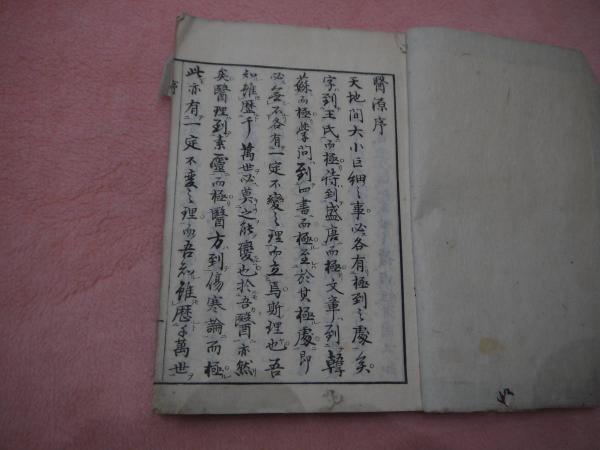 醫源序
天地間大小巨細之事必各有極到之處矣
字到王氏而極詩到盛唐而極文章到韓
蘇而極學問到四書而極至於其極處即
必無不各有一定不變之理而立焉斯理也吾
知雖歴千萬世必莫之能變也於吾醫亦然
矣醫理到素靈而極醫方到傷寒論而極
此亦有一定不变之理而吾知雖歴千萬世
序